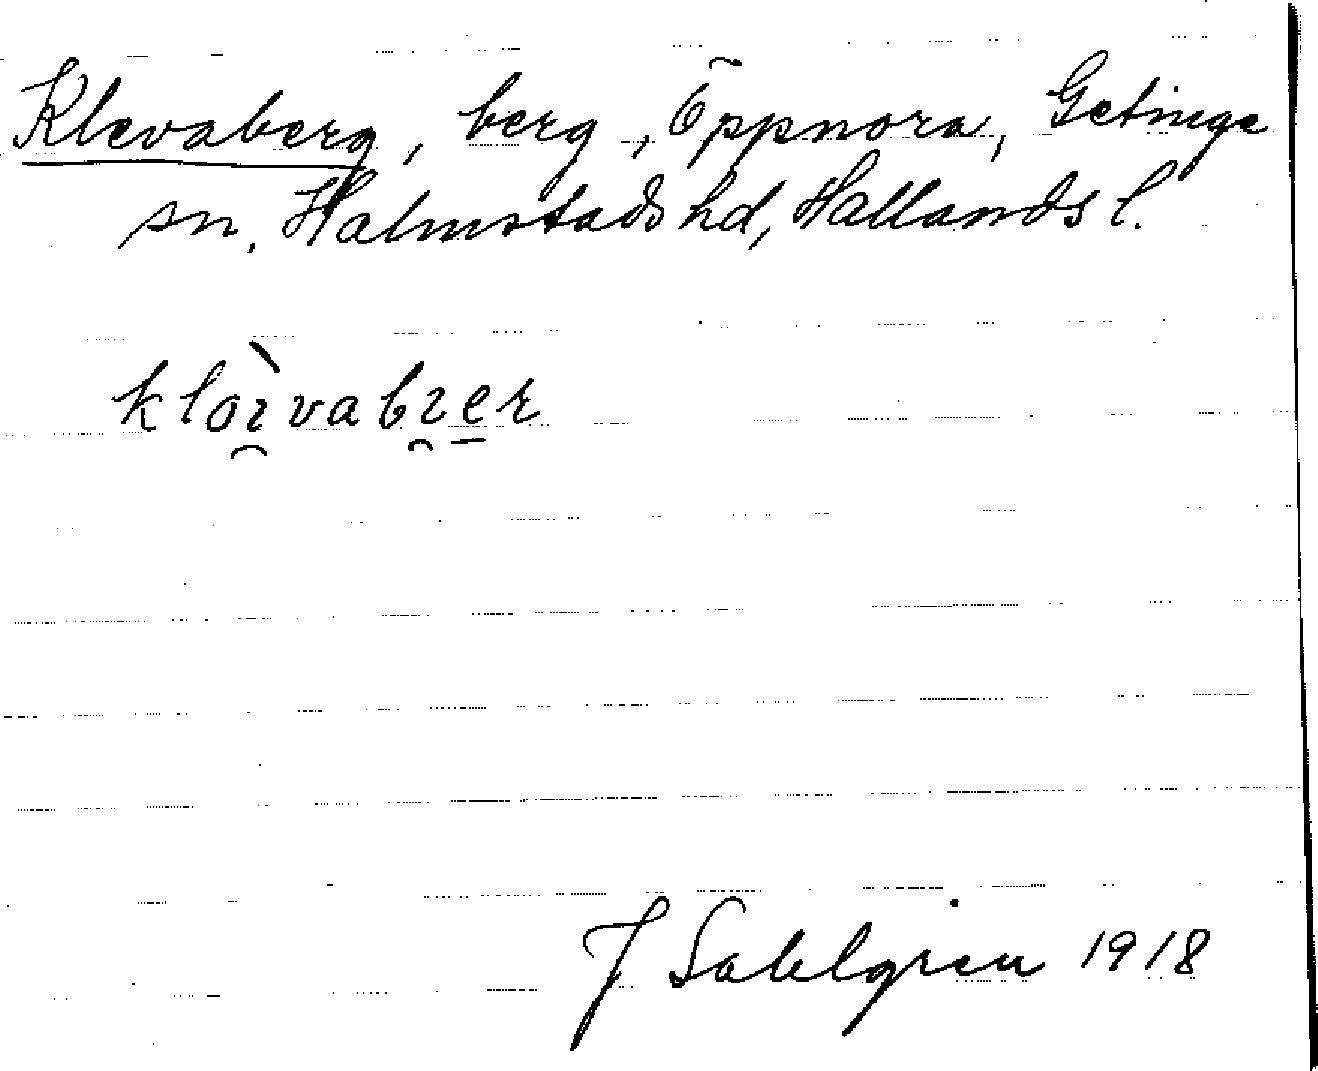 Klevaberg, berg, Öppnora, Getinge
sn, Halmstads hd, Hallands l.
klòɪ̯vabɪ̯e̲r
J Sahlgren 1918